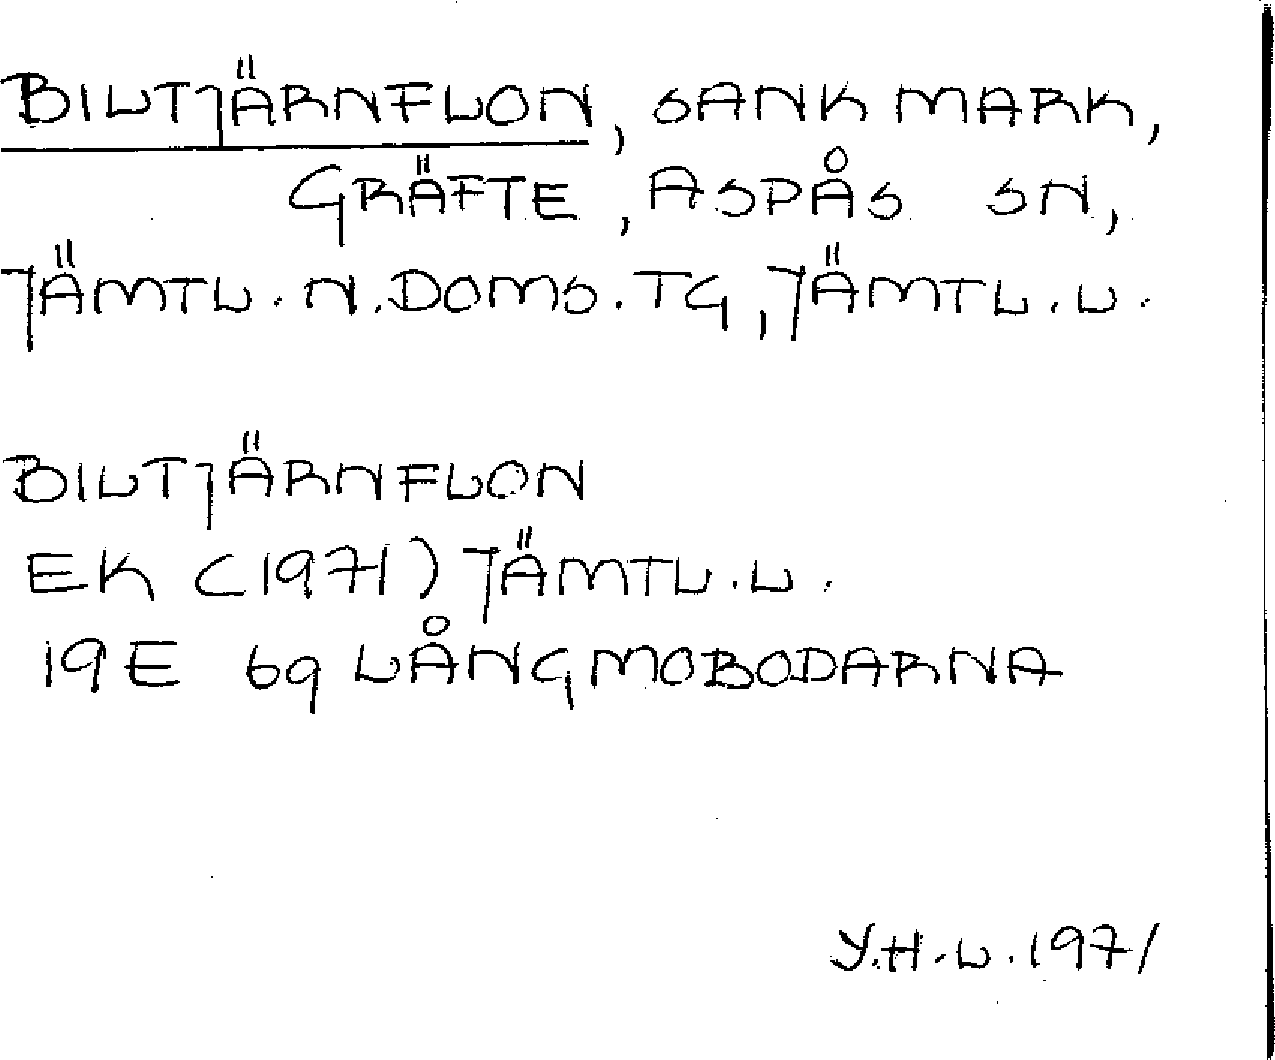 BILTJÄRNFLON, SANK MARK,
GRÄFTE, ASPÅS SN,
JÄMTL. N. DOMS. TG, JÄMTL. L.
BILTJÄRNFLON
EK (1971) JÄMTL. L.
19E 6g LÅNGMOBODARNA
Y.H.L. 1971